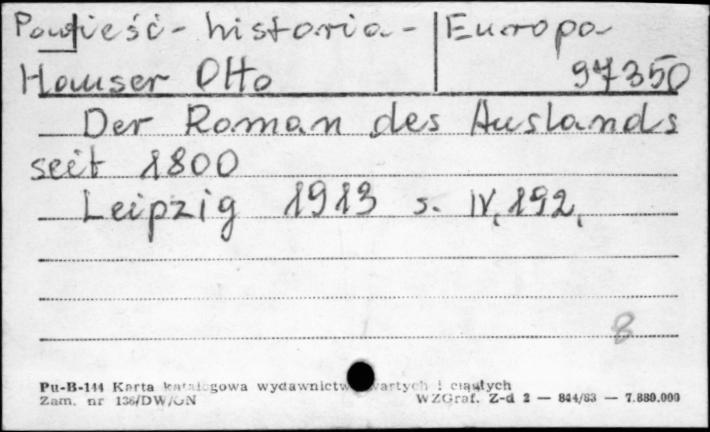 Powieść - historia - Europa
Hauser Otto 97350
Der Roman des Auslands
seit 1800
Leipzig 1913 s. IV, 192,
8
Pu-B-144 Karta katalogowa wydawnictw zwartych i ciągłych
Zam. nr 136/DW/ON WZGraf. Z-d 2 — 844/83 — 7.880.000